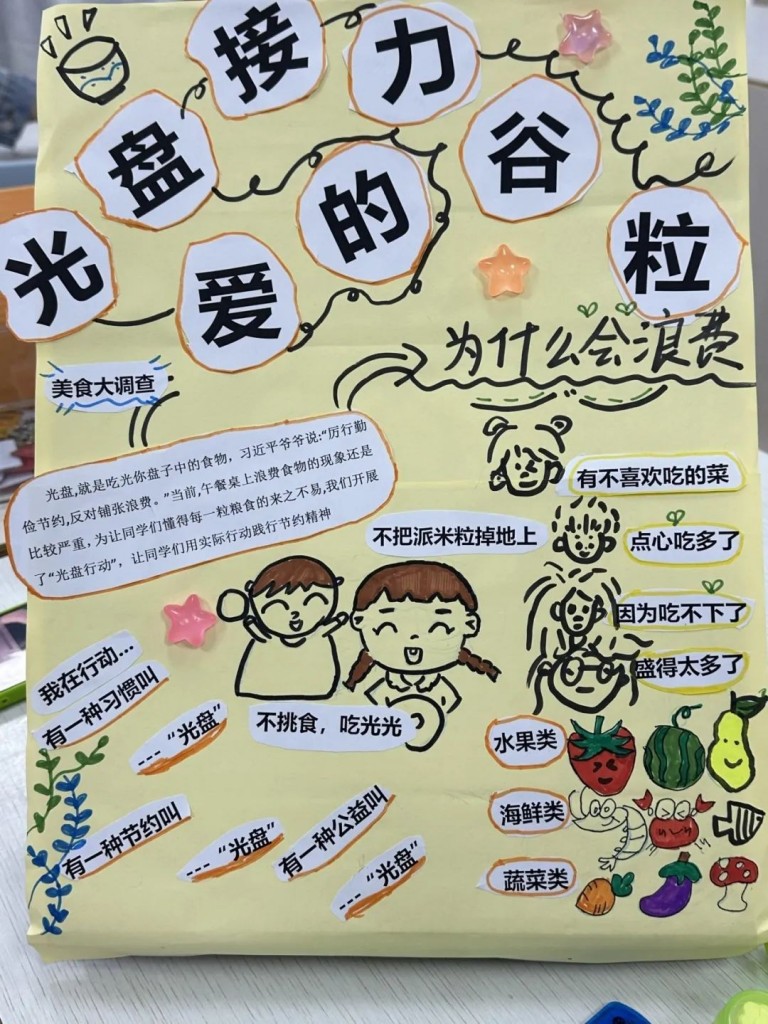 光盘接力
爱的谷粒
美食大调查
光盘,就是吃光你盘子中的食物，习近平爷爷说:“厉行勤
俭节约,反对铺张浪费。”当前,午餐桌上浪费食物的现象还是
比较严重，为让同学们懂得每一粒粮食的来之不易,我们开展
了“光盘行动”，让同学们用实际行动践行节约精神
为什么会浪费
有不喜欢吃的菜
点心吃多了
因为吃不下了
盛得太多了
不把派米粒掉地上
不挑食，吃光光
我在行动...
有一种习惯叫
---“光盘”
有一种节约叫
---“光盘”
有一种公益叫
---“光盘”
水果类
海鲜类
蔬菜类